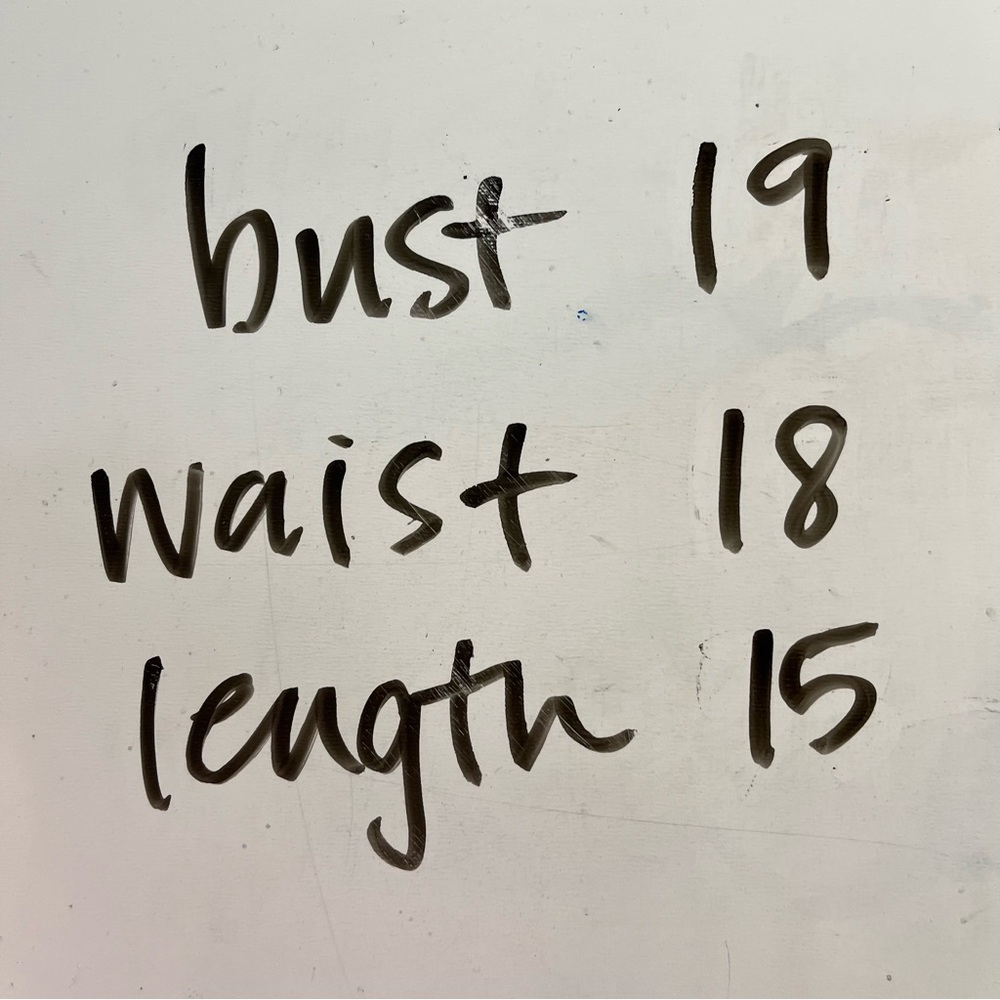 bust 19
waist 18
length 15